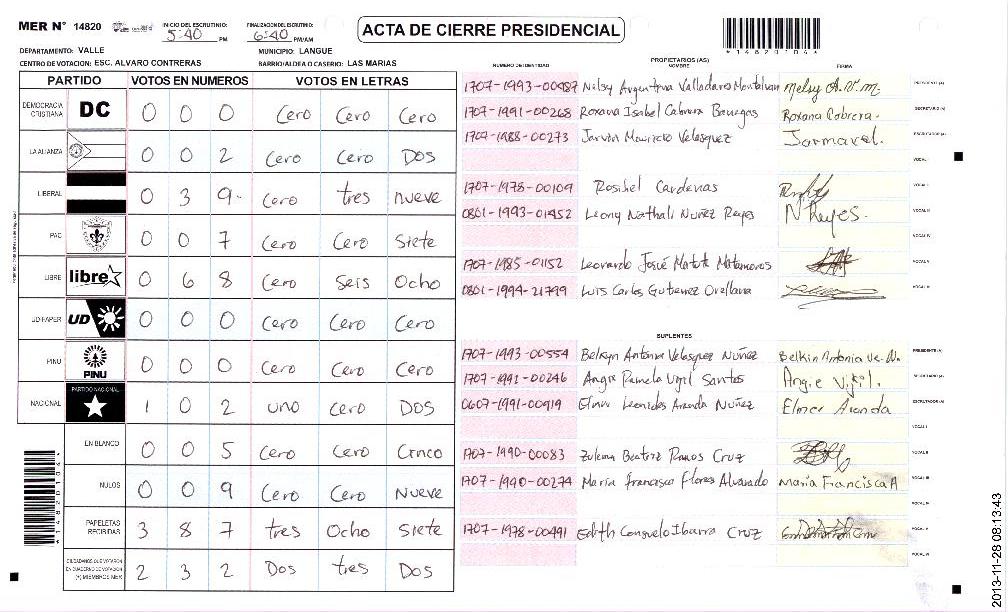 MER N° 14820
INICIO DEL ESCRUTINIO: 5:40 PM
FINALIZACION DEL ESCRUTINIO: 6:40 PM/AM
ACTA DE CIERRE PRESIDENCIAL
*14820104*
DEPARTAMENTO: VALLE
MUNICIPIO: LANGUE
CENTRO DE VOTACION: ESC. ALVARO CONTRERAS
BARRIO/ALDEA O CASERIO: LAS MARIAS
PARTIDO VOTOS EN NUMEROS VOTOS EN LETRAS
DEMOCRACIA CRISTIANA DC 0 0 0 Cero Cero Cero
LA ALIANZA 0 0 2 Cero Cero Dos
LIBERAL 0 3 9 Cero tres nueve
PAC 0 0 7 Cero Cero Siete
LIBRE libre 0 6 8 Cero Seis Ocho
UD/FAPER UD 0 0 0 Cero Cero Cero
PINU PINU 0 0 0 Cero Cero Cero
NACIONAL PARTIDO NACIONAL 1 0 2 uno Cero Dos
EN BLANCO 0 0 5 Cero Cero Cinco
NULOS 0 0 9 Cero Cero Nueve
PAPELETAS RECIBIDAS 3 8 7 tres Ocho Siete
CIUDADANOS QUE VOTARON EN CUADERNO DE VOTACION (+) MIEMBROS MER 2 3 2 Dos tres Dos
*14820104*
PROPIETARIOS (AS)
NUMERO DE IDENTIDAD NOMBRE FIRMA
1707-1993-00987 Nelsy Argentina Valladares Montalvan Melsy A.V.M. PRESIDENTE (A)
1707-1991-00268 Roxana Isabel Cabrera Banegas Roxana Cabrera. SECRETARIO (A)
1707-1988-00273 Jarvin Mauricio Velasquez ESCRUTADOR (A)
VOCAL I
1707-1978-00109 Rosibel Cardenas VOCAL II
0801-1993-01452 Leony Nathali Nuñez Reyes N Reyes. VOCAL III
VOCAL IV
1707-1985-01152 Leonardo José Matute Matamoros VOCAL V
0801-1994-21799 Luis Carlos Gutierrez Orellana VOCAL VI
SUPLENTES
1707-1993-00554 Belkyn Antonia Velasquez Nuñez Belkin Antonia Ve. N. PRESIDENTE (A)
1707-1991-00246 Angie Pamela Vigil Santos Angie Vigil. SECRETARIO (A)
0607-1991-00919 Elmer Leonidas Aranda Nuñez Elmer Aranda ESCRUTADOR (A)
VOCAL I
1707-1990-00083 Zulema Beatriz Ramos Cruz VOCAL II
1707-1990-00274 María francisca Flores Alvarado María Francisca A VOCAL III
VOCAL IV
1707-1978-00491 Edith Consuelo Ibarra Cruz VOCAL V
VOCAL VI
2013-11-28 08:13:43